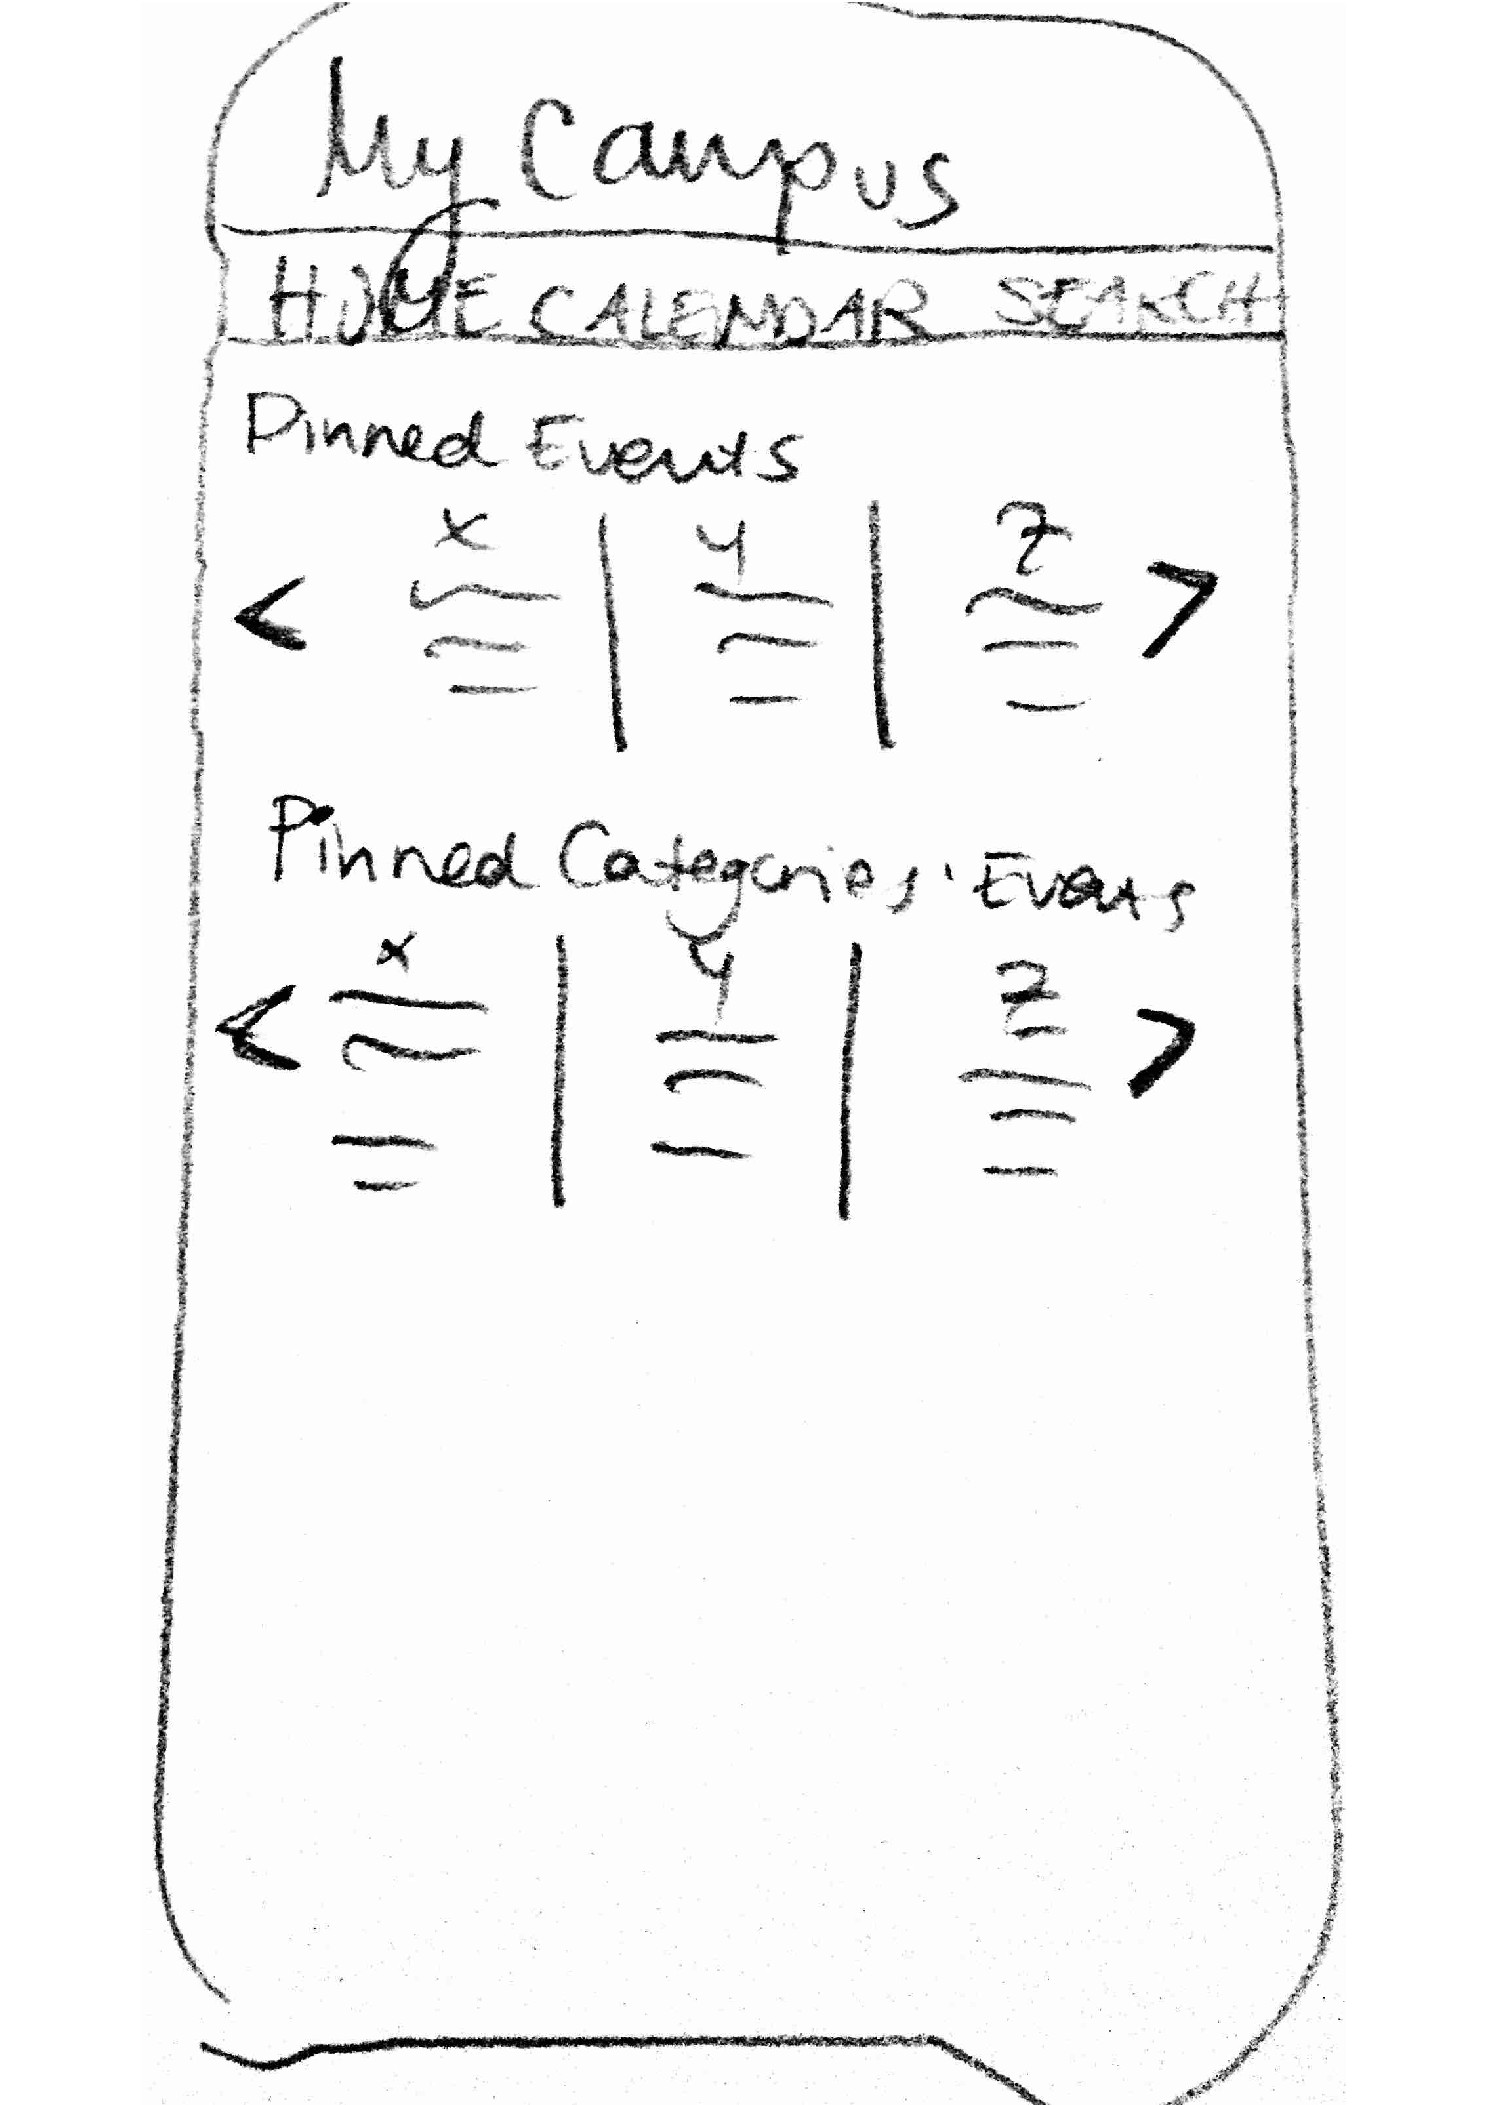 My Campus
HOME CALENDAR SEARCH
Pinned Events
< x | y | z >
Pinned Categories' Events
< x | y | z >